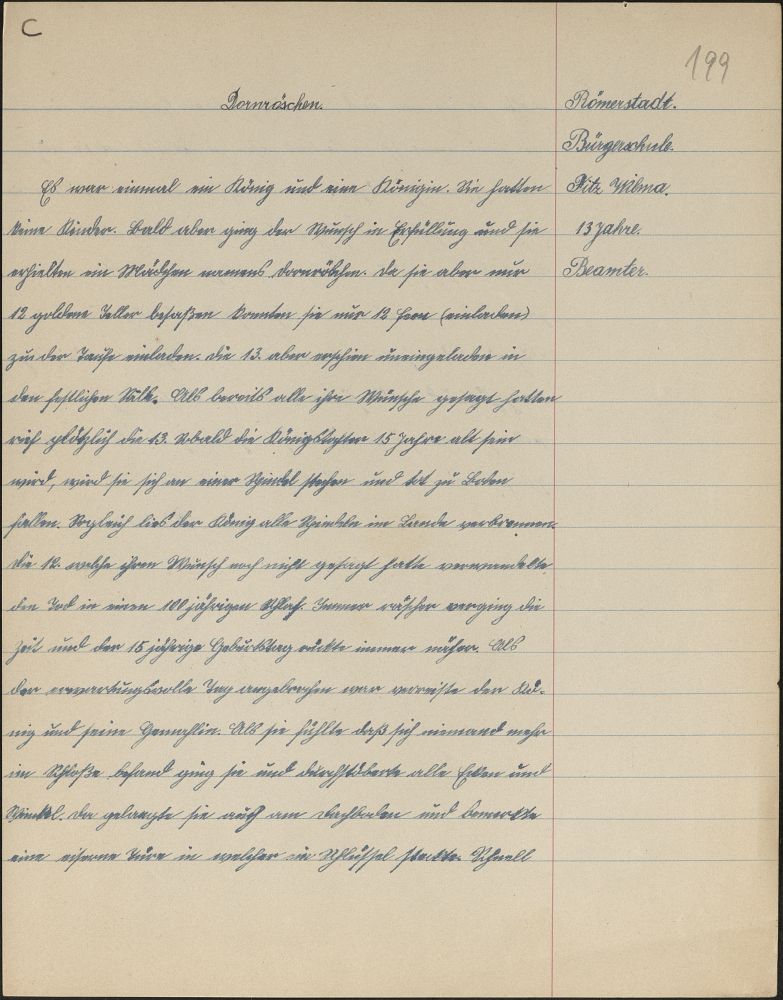 C
199
Dornröschen.
Römerstadt.
Bürgerschule.
Es war einmal ein König und eine Königin. Sie hatten
Pitz Wilma.
keine Kinder. Bald aber ging der Wunsch in Erfüllung und sie
13 Jahre.
erhielten ein Mädchen namens Dornröschen. Da sie aber nur
Beamter.
12 goldene Teller besaßen konnten sie nur 12 Feen (einladen)
zu der Taufe einladen. Die 13. aber erschien uneingeladen in
den festlichen Saal. Als bereits alle ihre Wünsche gesagt hatten
rief plötzlich die 13. Sobald die Königstochter 15 Jahre alt sein
wird, wird sie sich an einer Spindel stechen und tot zu Boden
fallen. Sogleich lies der König alle Spindeln im Lande verbrennen.
Die 12. welche ihren Wunsch noch nicht gesagt hatte verwandelte
den Tod in einen 100 jährigen Schlaf. Immer rascher verging die
Zeit und der 15 jährige Geburtstag rückte immer näher. Als
der erwartungsvolle Tag angebrochen war verreiste der Kö-
nig und seine Gemahlin. Als sie fühlte daß sich niemand mehr
im Schloße befand ging sie und durchstöberte alle Ecken und
Winkel. Da gelangte sie auch am Dachboden und bemerkte
eine eiserne Türe in welcher ein Schlüssel steckte. Schnell